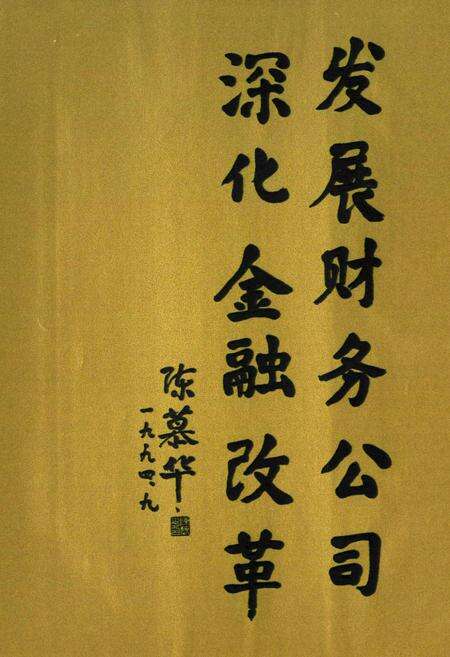 发展财务公司
深化金融改革
陈慕华
一九九四、九